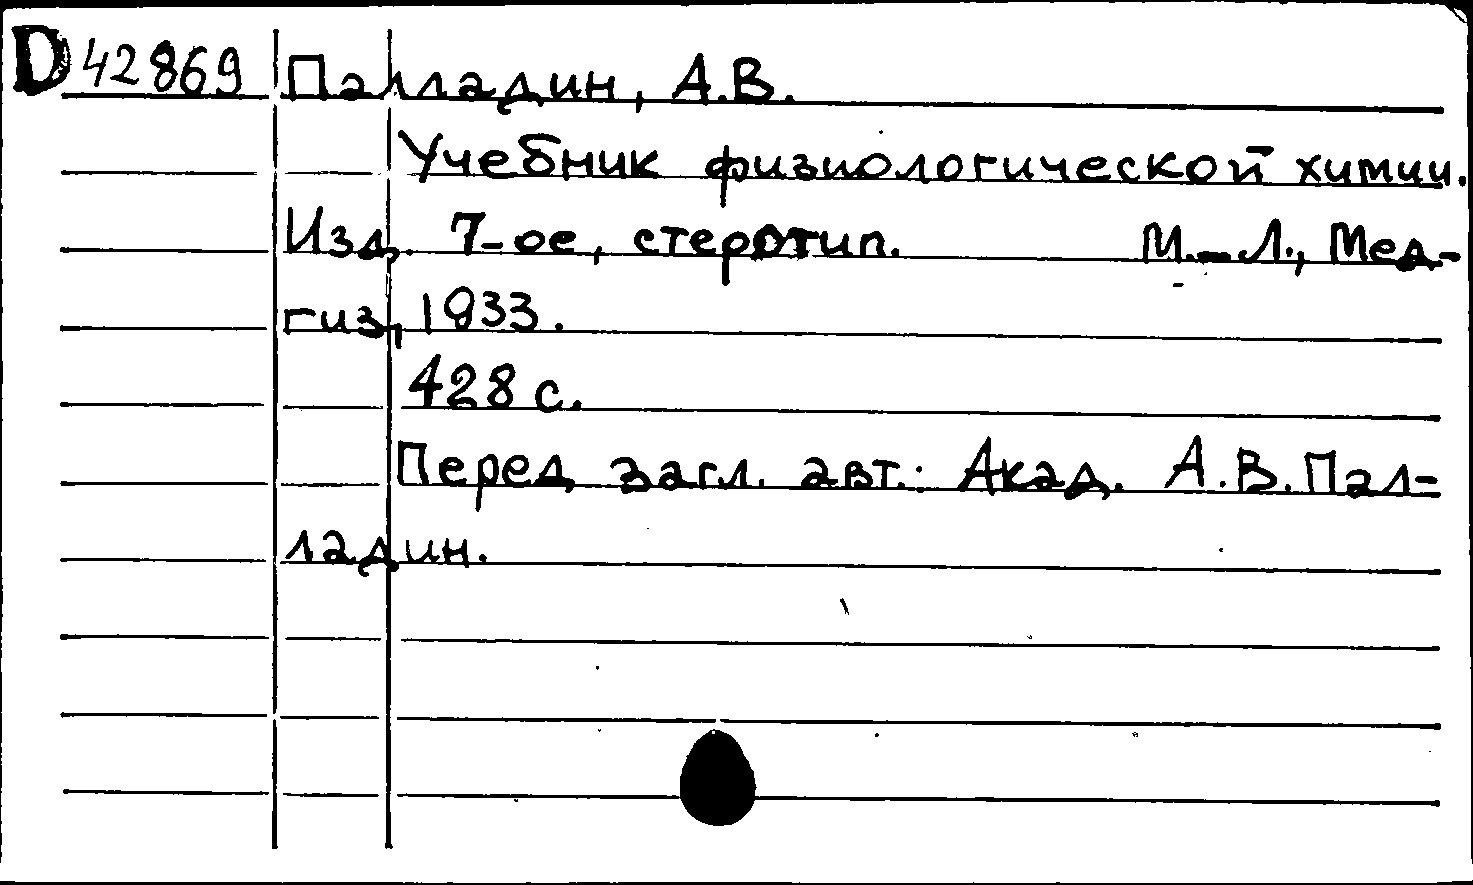 D 42869 Палладин, А.В.
Учебник физиологической химии.
Изд. 7-ое, стеротип. М.-Л., Мед-
гиз, 1933.
428 с.
Перед загл. авт.: Акад. А.В. Пал-
ладин.